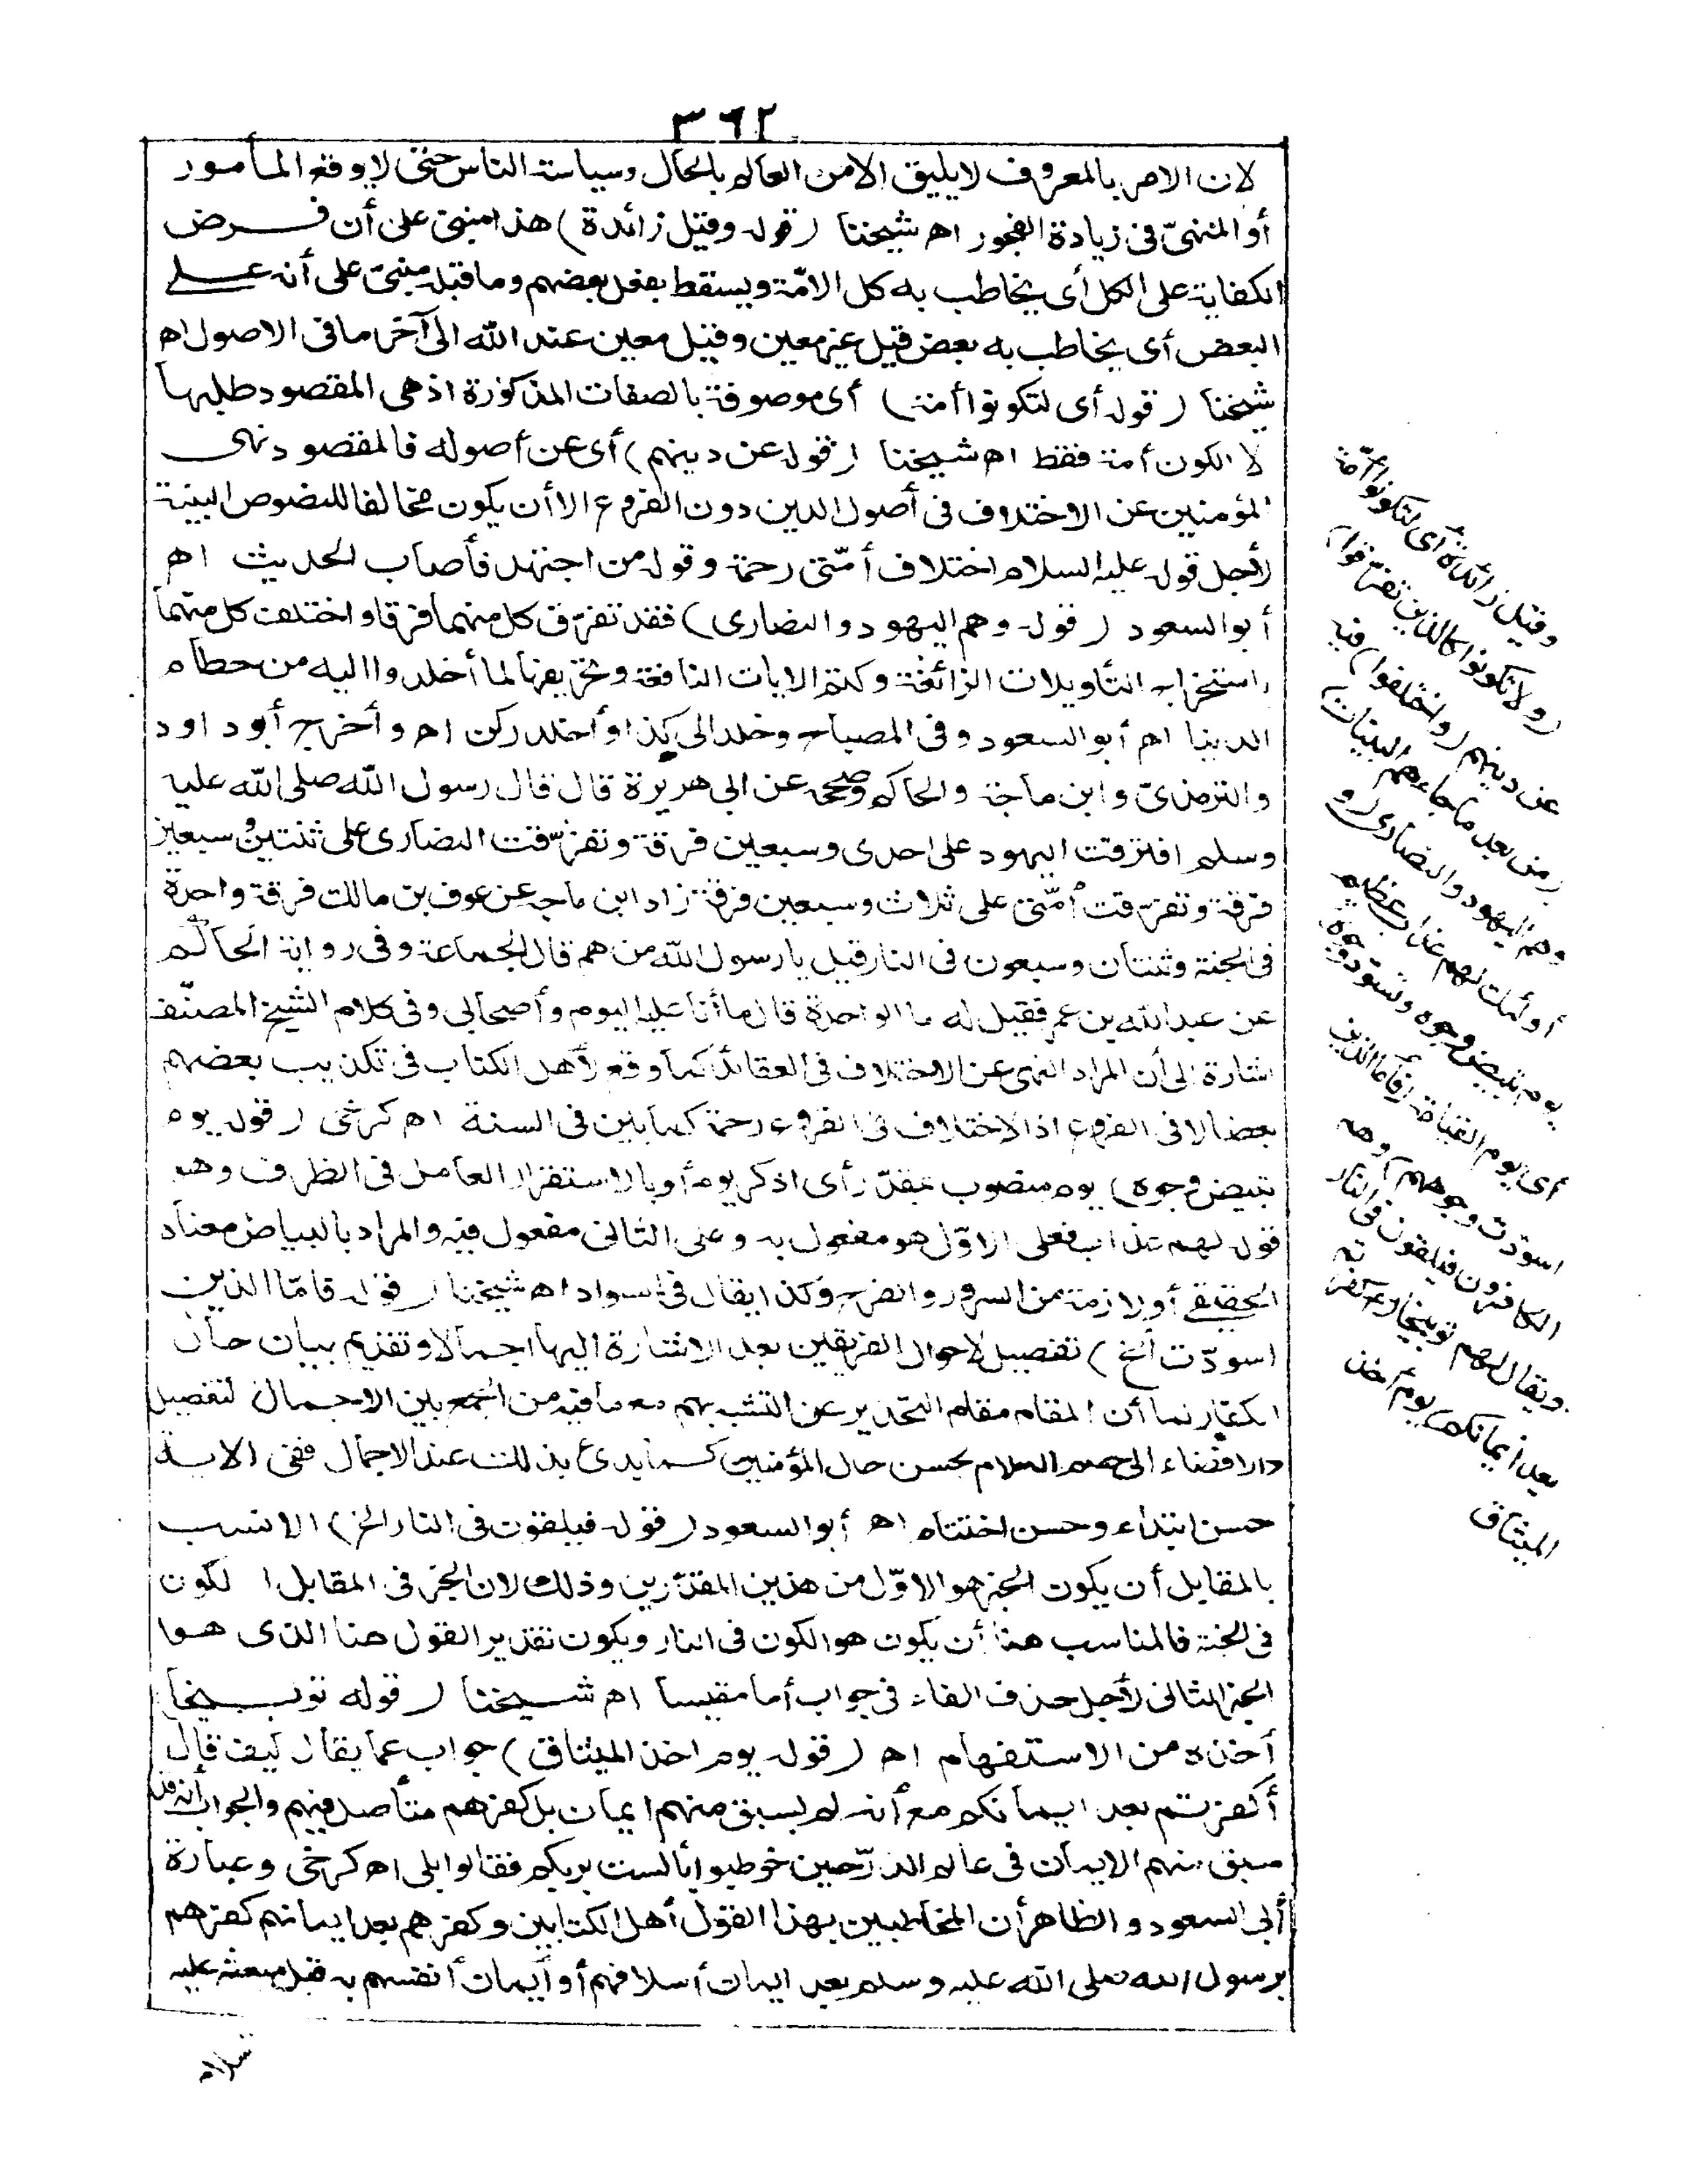 ٣٦٢
لان الامر بالمعروف لا يليق الا من العالم بالحال وسياسة الناس حتى لا يوقع المأمور
أو المنهىّ فى زيادة الفجور اه شيخنا (قوله وقيل زائدة) هذا مبنى على أن فرض
الكفاية على الكل أى يخاطب به كل الامّة ويسقط بفعل بعضهم وما قبله مبنىّ على أنه على
البعض أى يخاطب به بعض قيل غير معين وقيل معين عند الله الى آخر ما فى الاصول اه
شيخنا (قوله أى لتكونوا أمة) أى موصوفة بالصفات المذكورة اذ هى المقصود طلبها
لا الكون أمة فقط اه شيخنا (قوله عن دينهم) أى عن أصوله فالمقصود نهى
المؤمنين عن الاختلاف فى أصول الدين دون الفروع الا أن يكون مخالفا للنصوص البينة
لأجل قوله عليه السلام اختلاف أمّتى رحمة وقوله من اجتهد فأصاب الحديث اه
أبو السعود (قوله وهم اليهود والنصارى) فقد تفرّق كل منهما فرقا واختلف كل منهما
باستخراج التأويلات الزائغة وكتم الايات النافعة وتحريفها لما أخلدوا اليه من حطام
الدينا اه أبو السعود وفى المصباح وخلد الى كذا وأخلد ركن اه وأخرج أبو داود
والترمذىّ وابن ماجة والحاكم وصححه عن ابى هريرة قال قال رسول الله صلى الله عليه
وسلم افترقت اليهود على احدى وسبعين فرقة وتفرّقت النصارى على ثنتين وسبعين
فرقة وتفرّقت أمّتى على ثلاث وسبعين فرقة زاد ابن ماجه عن عوف بن مالك فرقة واحدة
فى الجنة وثنتان وسبعون فى النار قيل يا رسول الله من هم قال الجماعة وفى رواية الحاكم
عن عبد الله بن عمر فقيل له ما الواحدة قال ما أنا عليه اليوم وأصحابى وفى كلام الشيخ المصنّف
اشارة الى أن المراد النهى عن الاختلاف فى العقائد كما وقع لأهل الكتاب فى تكذيب بعضهم
بعضا لا فى الفروع اذ الاختلاف فى الفروع رحمة كما بين فى السنة اه كرخى (قوله يوم
تبيض وجوه) يوم منصوب بمقدّر أى اذكر يوم أو بالاستقرار العامل فى الظرف وهو
قوله لهم عذاب فعلى الاوّل هو مفعول به وعلى الثانى مفعول فيه والمراد بالبياض معناه
الحقيقى أو لازمه من السرور والفرح وكذا يقال فى السواد اه شيخنا (قوله فامّا الذين
اسودّت الخ) تفصيل لاحوال الفريقين بعد الاشارة اليها اجمالا وتقديم بيان حال
الكفار لما أن المقام مقام التحذير عن التشبه بهم مع ما فيه من الجمع بين الاجمال لتفصيل
والافضاء الى ختم الكلام بحسن حال المؤمنين كما بدئ بذلك عند الاجمال ففى الاية
حسن ابتداء وحسن اختتام اه أبو السعود (قوله فيلقون فى النار الخ) الانسب
بالمقابل أن يكون الخبر هو الاوّل من هذين المقدّرين وذلك لان الخبر فى المقابل الكون
فى الجنة فالمناسب هنا أن يكون هو الكون فى النار ويكون تقدير القول هنا الذى هو
الخبر الثانى لأجل حذف الفاء فى جواب أما مقيسا اه شيخنا (قوله توبيخا)
أخذه من الاستفهام اه (قوله يوم اخذ الميثاق) جواب عما يقال كيف قال
أكفرتم بعد ايمانكم مع أنه لم يسبق منهم ايمان بل كفرهم متأصل فيهم والجواب انه قد
سبق منهم الايمان فى عالم الذرّ حين خوطبوا بألست بربكم فقالوا بلى اه كرخى وعبارة
أبى السعود والظاهر أن المخاطبين بهذا القول أهل الكتابين وكفرهم بعد ايمانهم كفرهم
برسول الله صلى الله عليه وسلم بعد ايمان أسلافهم أو ايمان أنفسهم به قبل مبعثه عليه
السلام
وقيل زائدة أى لتكونوا أمّة
(ولا تكونوا كالذين تفرّقوا)
عن دينهم (واختلفوا) فيه
(من بعد ما جاءهم البينات)
وهم اليهود والنصارى (و
أولئك لهم عذاب عظيم
يوم تبيض وجوه وتسودّ وجوه)
أى يوم القيامة (فأما الذين
اسودّت وجوههم) وهم
الكافرون فيلقون فى النار
ويقال لهم توبيخا (أكفرتم
بعد ايمانكم) يوم أخذ
الميثاق